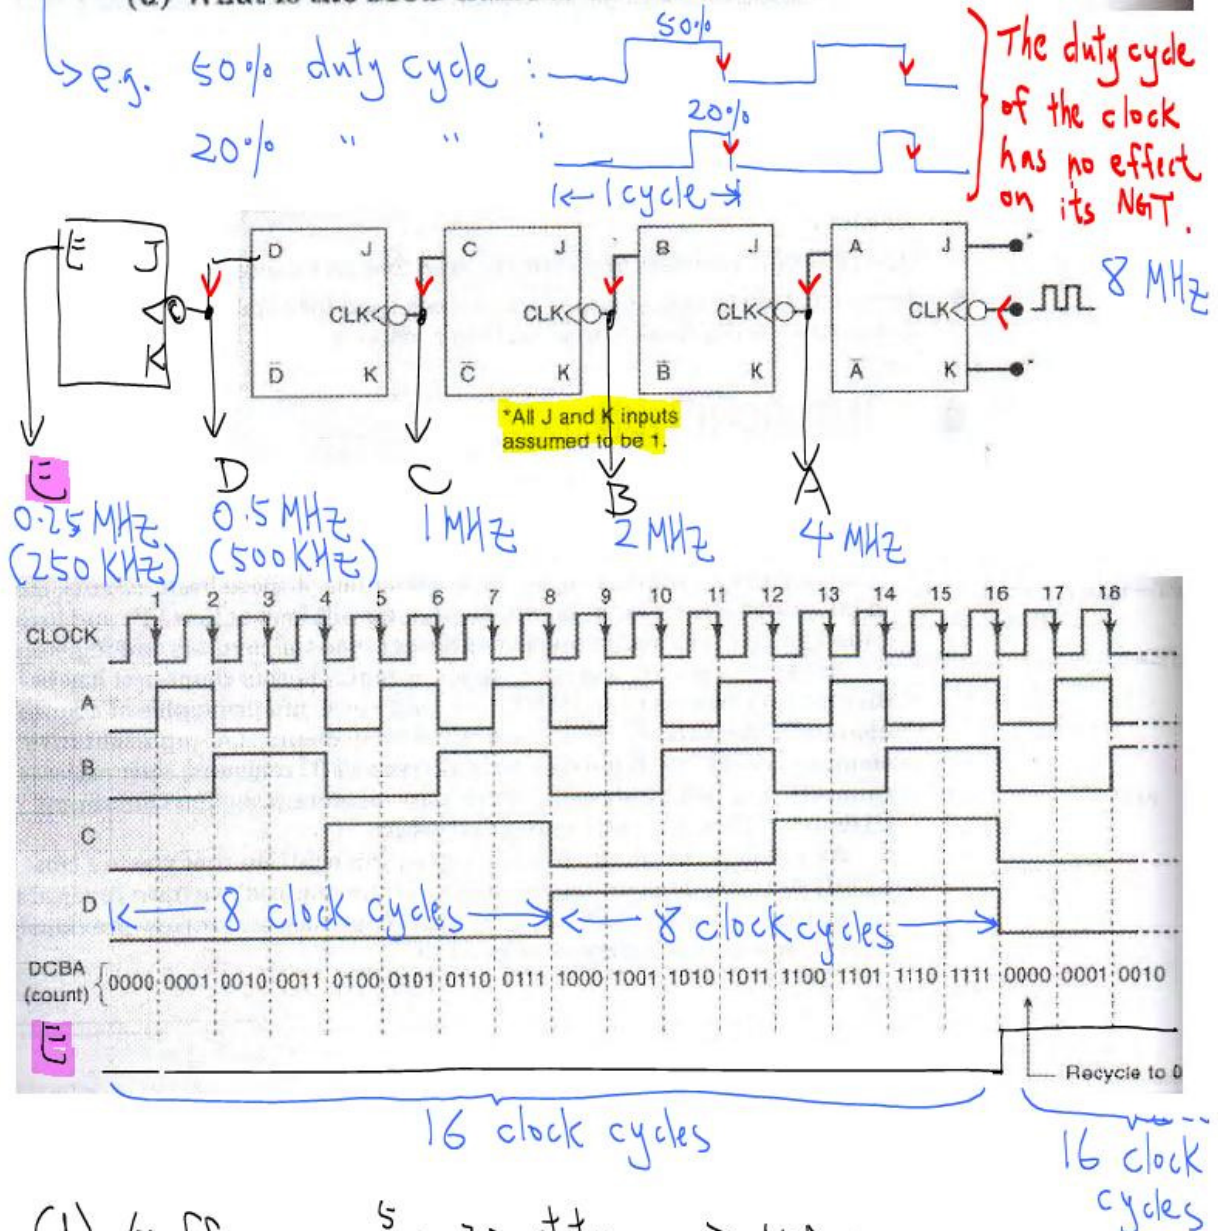 e.g. 50% duty cycle : 50%
20% " " : 20%
|← 1 cycle →|
The duty cycle
of the clock
has no effect
on its NGT.
E J
K
D J
CLK
D̅ K
C J
CLK
C̅ K
B J
CLK
B̅ K
A J
CLK
A̅ K
8 MHz
*All J and K inputs
assumed to be 1.
E D C B A
0.25 MHz 0.5 MHz 1 MHz 2 MHz 4 MHz
(250 KHz) (500 KHz)
2 3 4 5 6 7 8 9 10 11 12 13 14 15 16 17 18
CLOCK
A
B
C
D |← 8 clock cycles →|← 8 clock cycles →
DCBA
(count) { 0000 0001 0010 0011 0100 0101 0110 0111 1000 1001 1010 1011 1100 1101 1110 1111 0000 0001 0010
E
Recycle to 0
16 clock cycles
16 clock
cycles